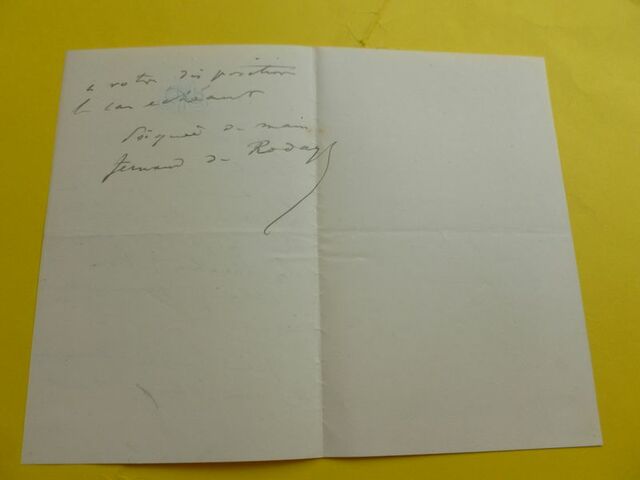 a votre disposition
le cas echeant
Poignée de main
Fernand de Rodays